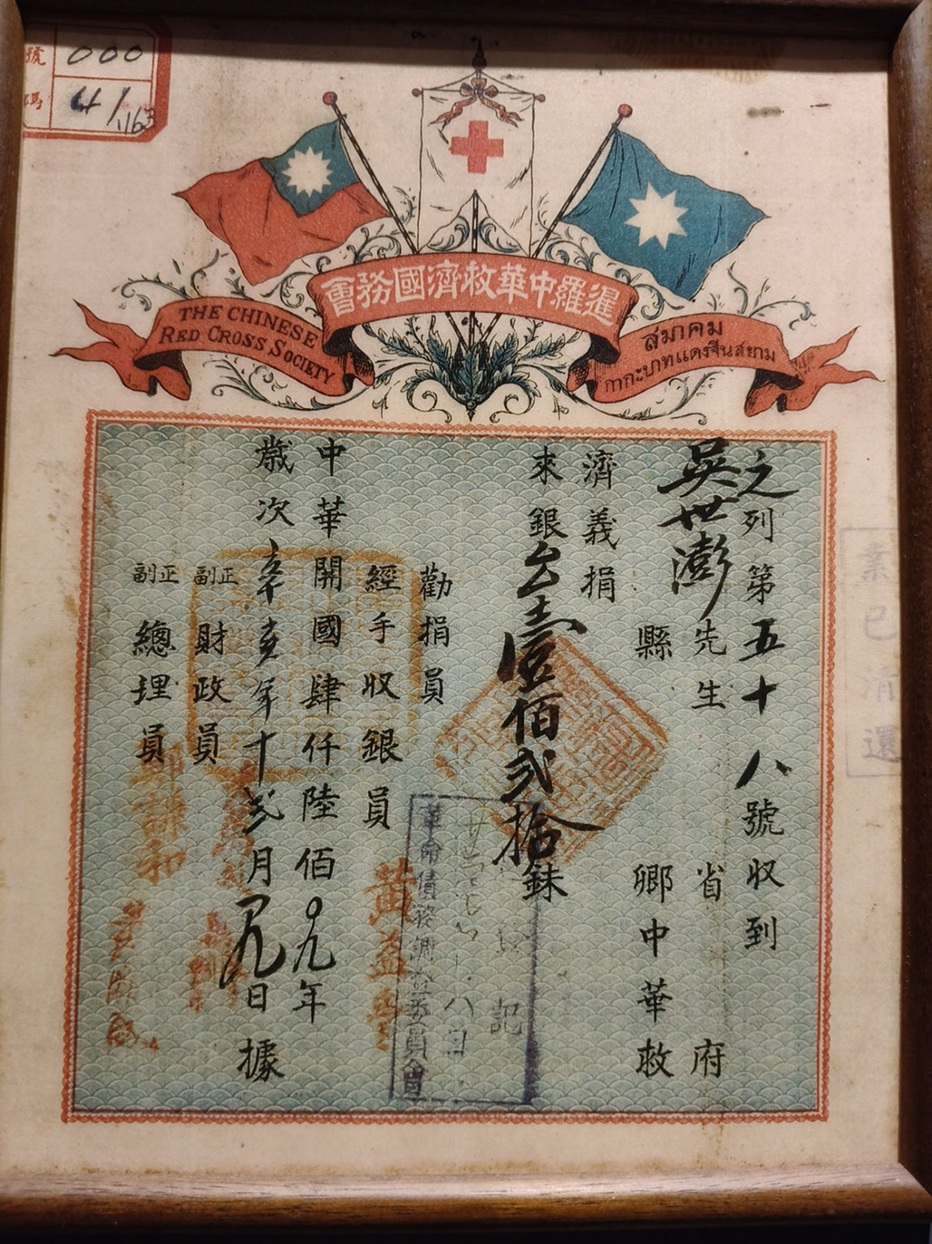 號碼
000
41
1163
暹羅中華救濟國務會
THE CHINESE
RED CROSS SOCIETY
สมาคม
กากะบาทแดงจีนสยาม
之列第五十八號收到
吳世澎先生 省 府
縣 鄉中華救
濟義捐
來銀
壹佰弍拾銖
勸捐員
經手收銀員
中華開國肆仟陸佰〇九年
歲次辛亥年十弍月 日據
正副財政員
正副總理員
黃
革命債務調查委員會
記
業已清還